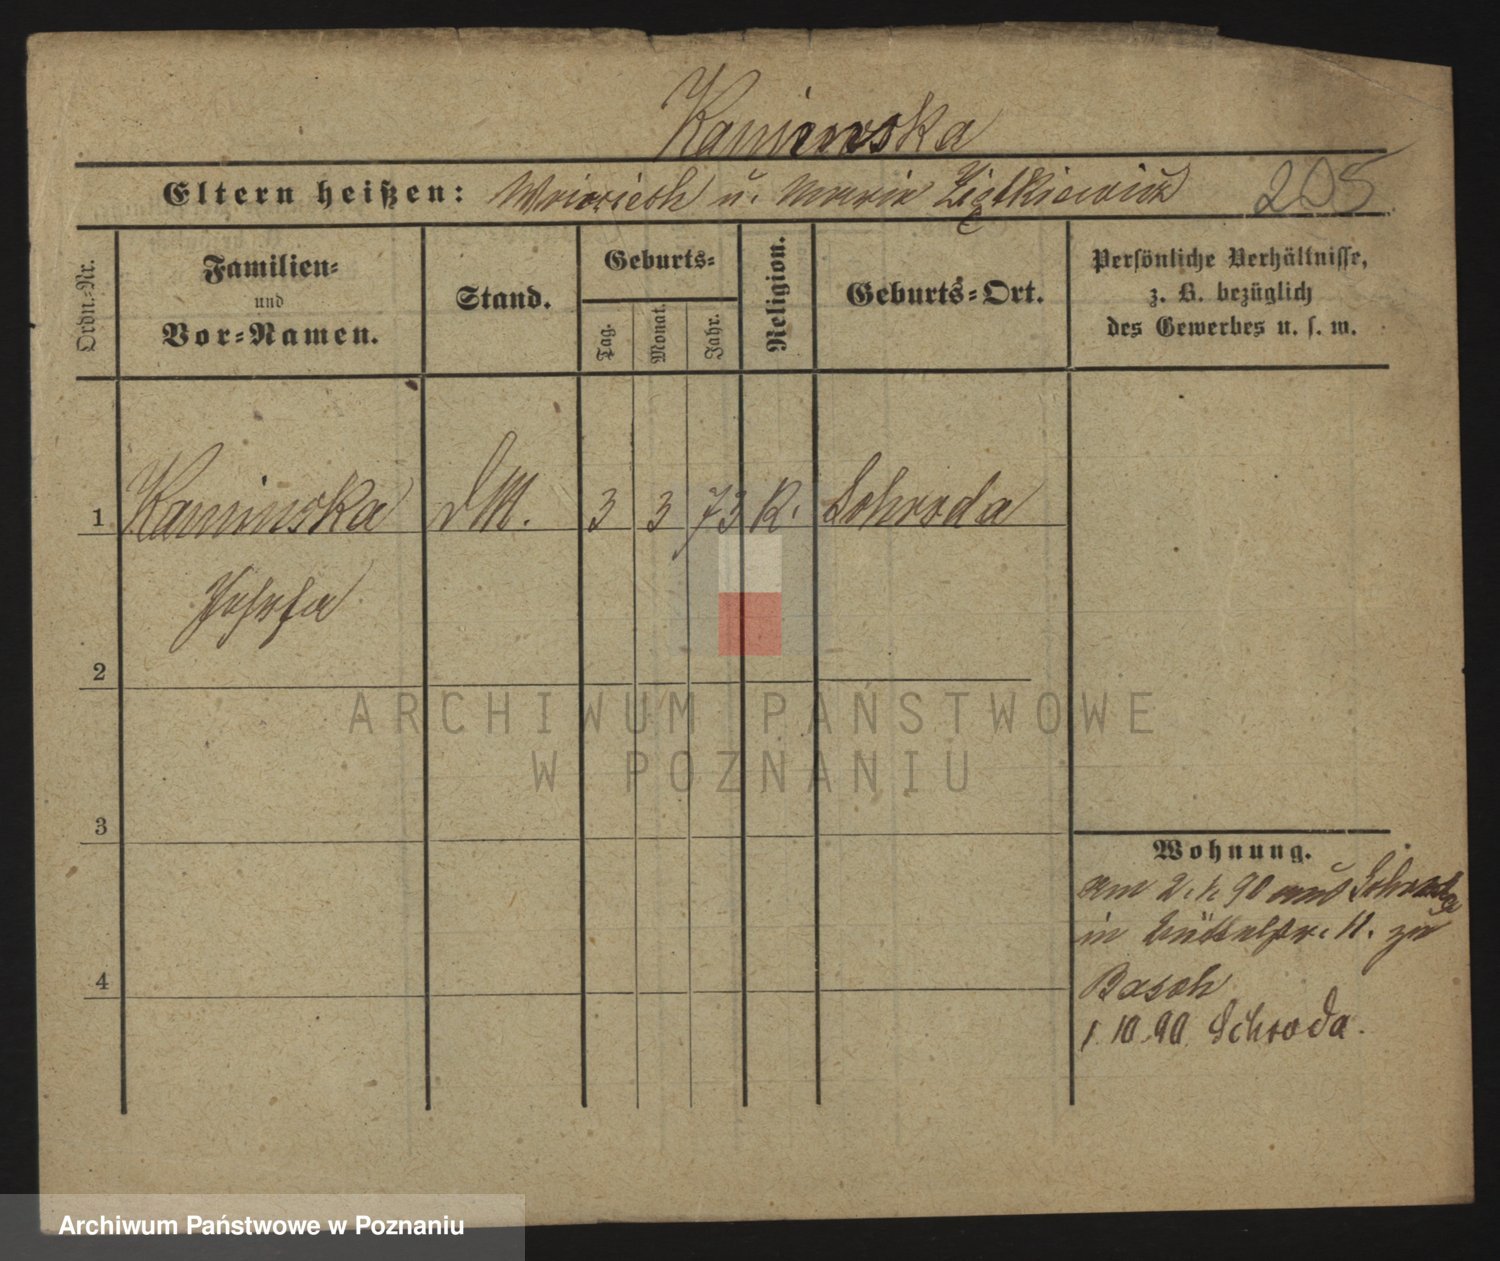 Kaminska
Eltern heißen: u. Maria Ziętkiewicz 205
Ordn.-Nr.
Familien-
und
Vor-Namen.
Stand.
Geburts-
Tag.
Monat.
Jahr.
Religion.
Geburts-Ort.
Persönliche Verhältnisse,
z. B. bezüglich
des Gewerbes u. s. w.
1 Kaminska DM. 3 3 73 K. Schroda
Josefa
2
3
4
Wohnung.
am 2. 90 aus Schroda
in Büttelstr. 11. zu
Basch
1 10.90. Schroda.
ARCHIWUM PAŃSTWOWE
W POZNANIU
Archiwum Państwowe w Poznaniu